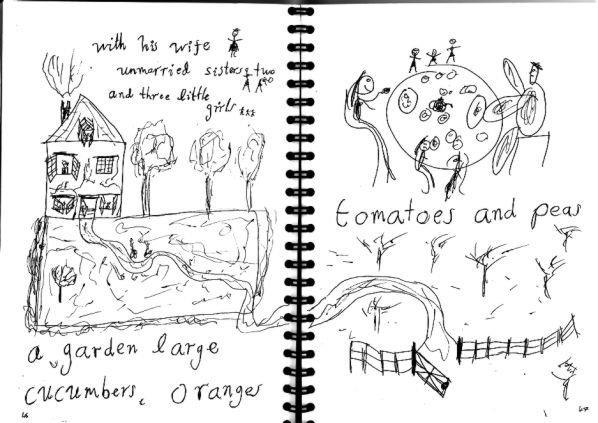 with his wife
unmarried sisters two
and three little
girls...
a garden large
cucumbers, oranges
tomatoes and peas